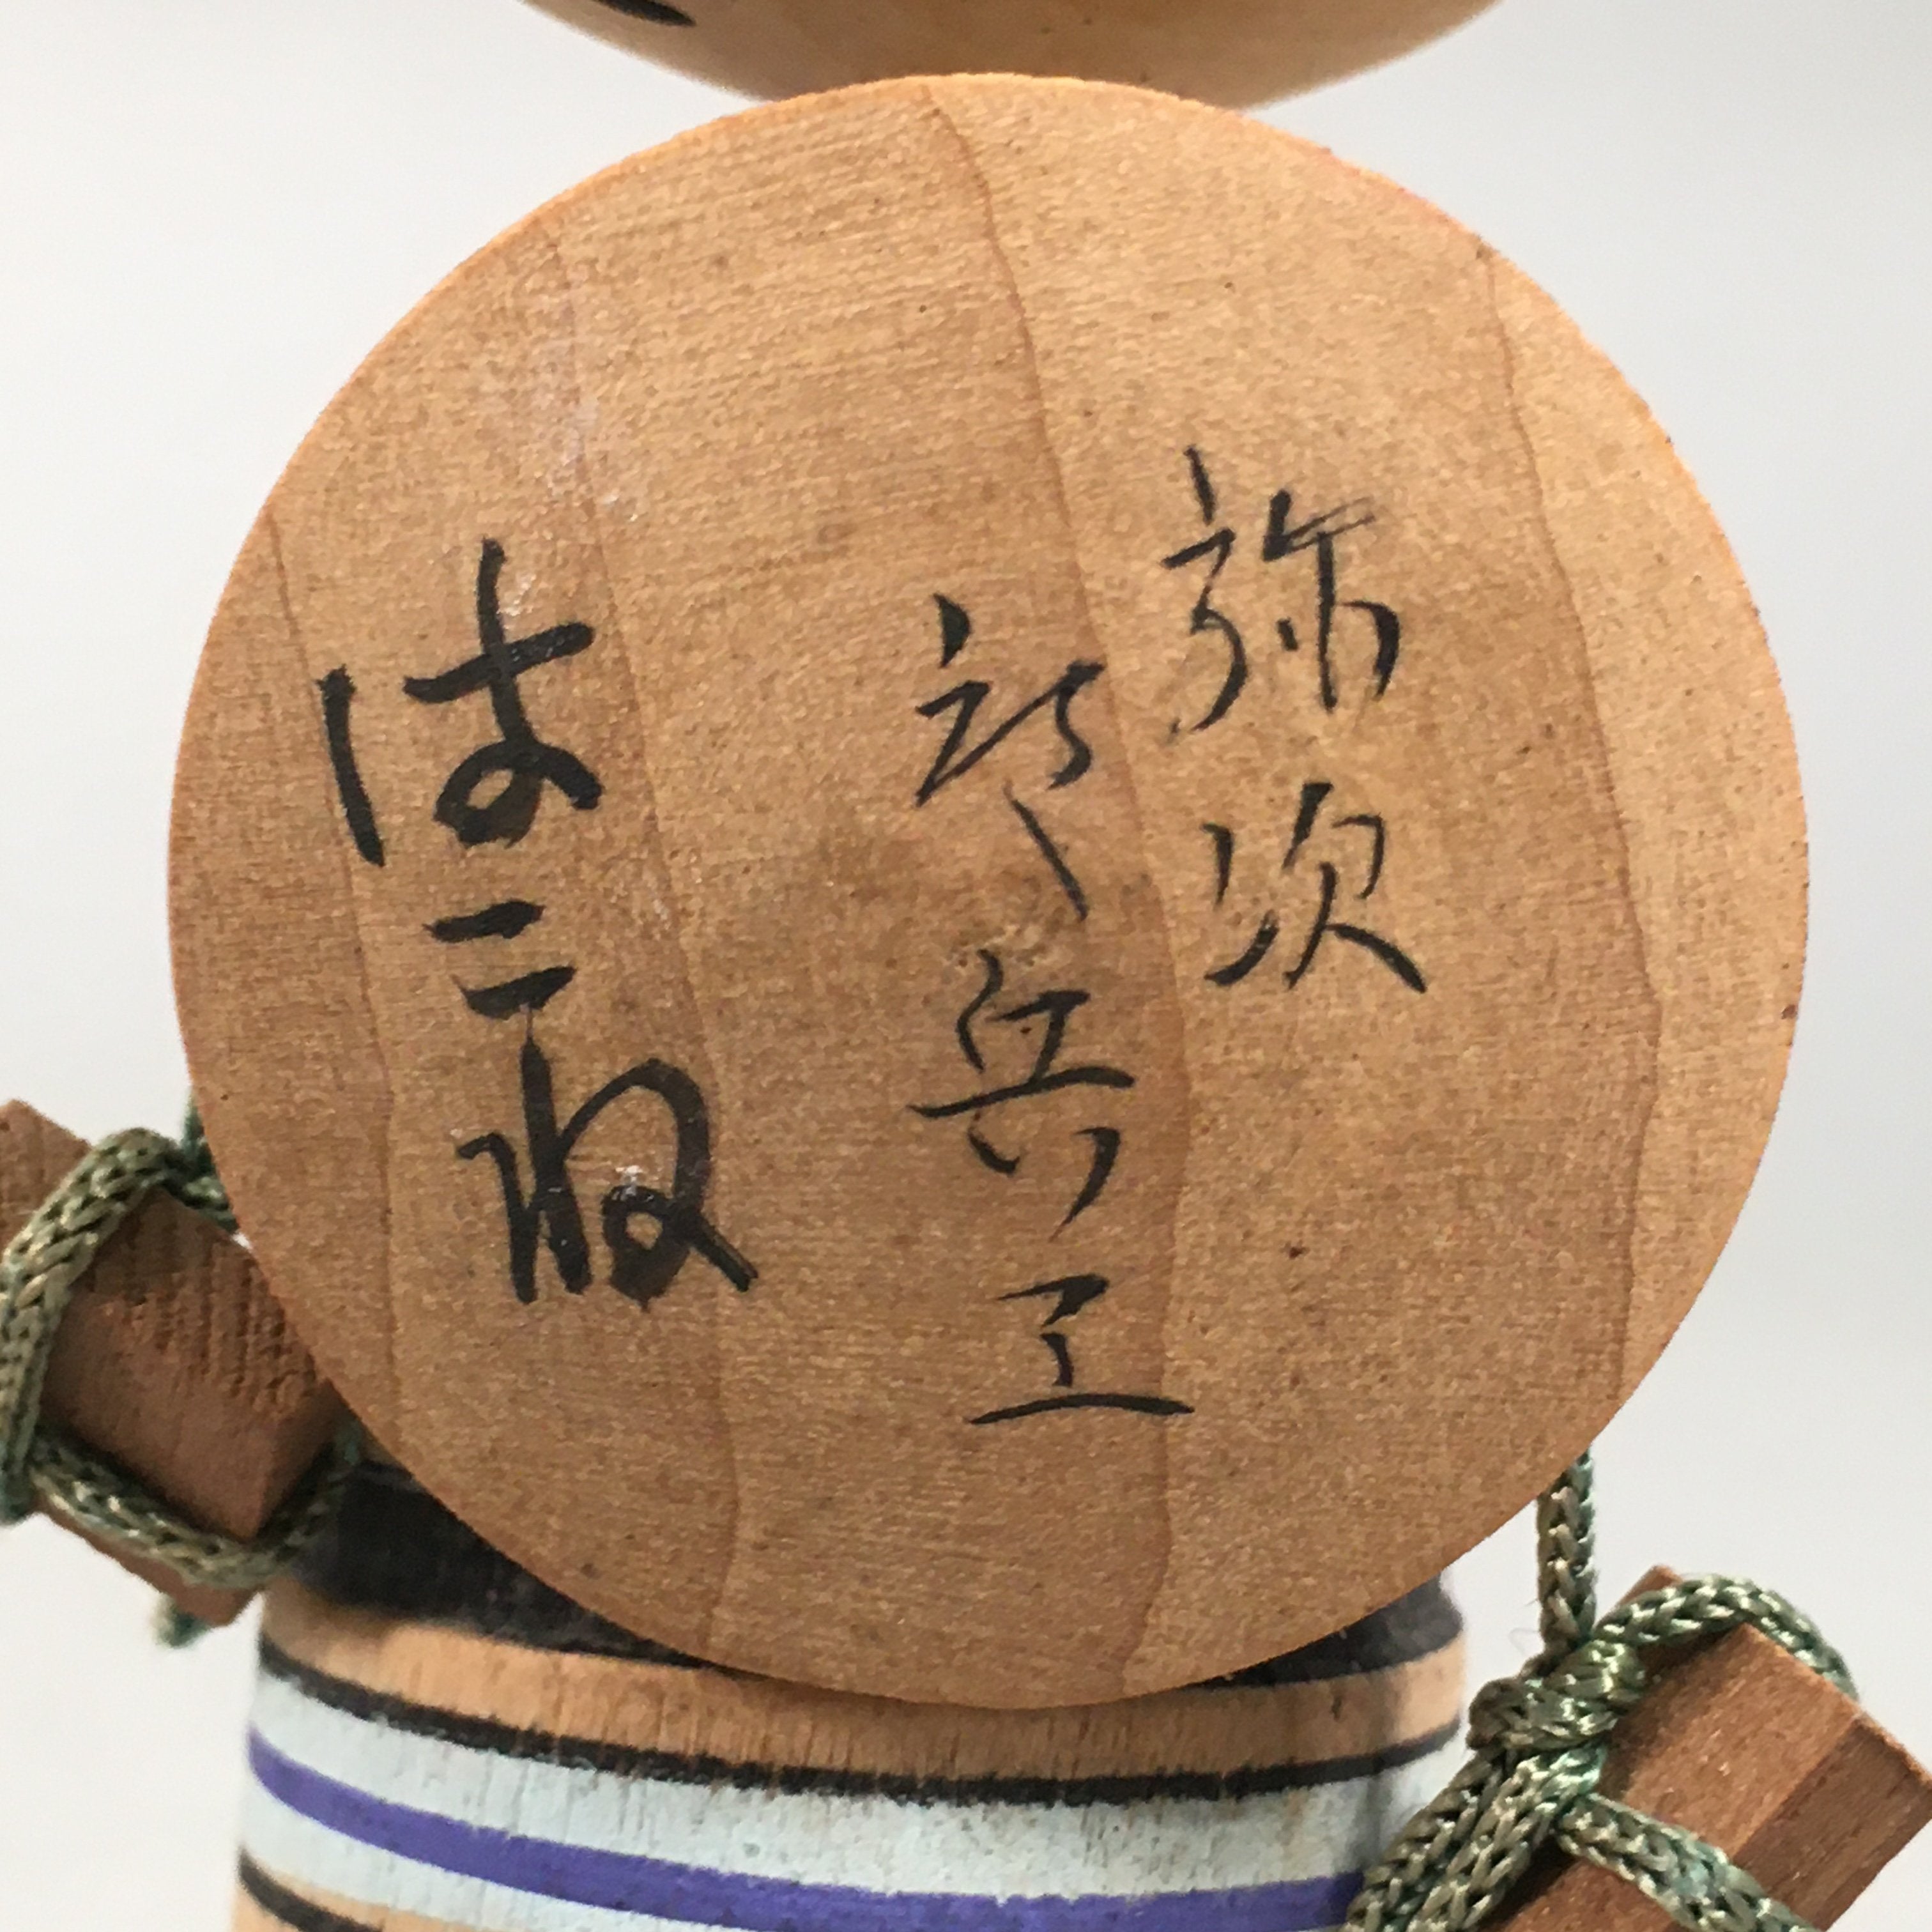 弥次
郎兵エ
はこね